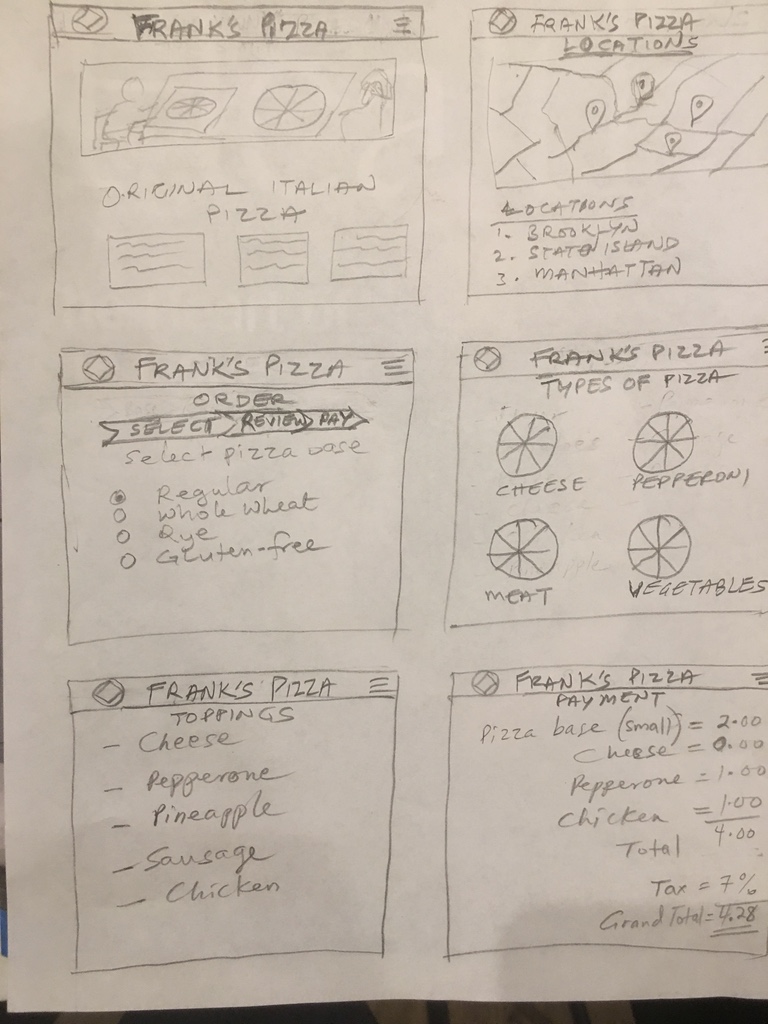 FRANK'S PIZZA
ORIGINAL ITALIAN
PIZZA
FRANK'S PIZZA
LOCATIONS
LOCATIONS
1. BROOKLYN
2. STATE ISLAND
3. MANHATTAN
FRANK'S PIZZA
ORDER
SELECT REVIEW PAY
Select pizza base
Regular
Whole Wheat
Rye
Gluten-free
FRANK'S PIZZA
TYPES OF PIZZA
CHEESE PEPPERONI
MEAT VEGETABLES
FRANK'S PIZZA
TOPPINGS
- Cheese
- Pepperone
- Pineapple
- Sausage
- Chicken
FRANK'S PIZZA
PAYMENT
Pizza base (small) = 2.00
Cheese = 0.00
Pepperone = 1.00
Chicken = 1.00
Total 4.00
Tax = 7%
Grand Total = 4.28